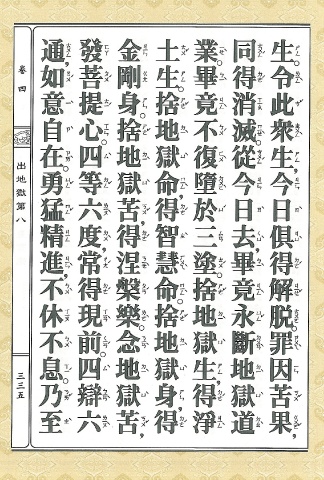 生。令此眾生，今日俱得解脫。罪因苦果，
同得消滅。從今日去，畢竟永斷地獄道
業。畢竟不復墮於三塗。捨地獄生，得淨
土生。捨地獄命，得智慧命。捨地獄身，得
金剛身。捨地獄苦，得涅槃樂。念地獄苦，
發菩提心。四等六度，常得現前。四辯六
通，如意自在。勇猛精進，不休不息。乃至
卷四
出地獄第八
三三五